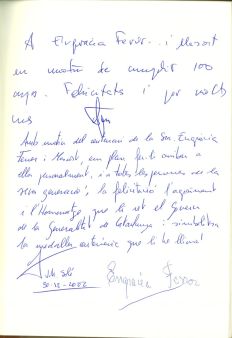 A Engracia Ferrer i Masort
en motiu de cumplir 100
anys. Felicitats i per molts
més
Amb motiu del centenari de la Sra. Engràcia
Ferrer i Masort, em plau fer-li arribar a
ella personalment, i a totes les persones de la
seva generació, la felicitació, l'agraïment
i l'homenatge que li ret el Govern
de la Generalitat de Catalunya i simbolitza
la medalla centenària que li he lliurat
30-12-2002
Engracia Ferrer